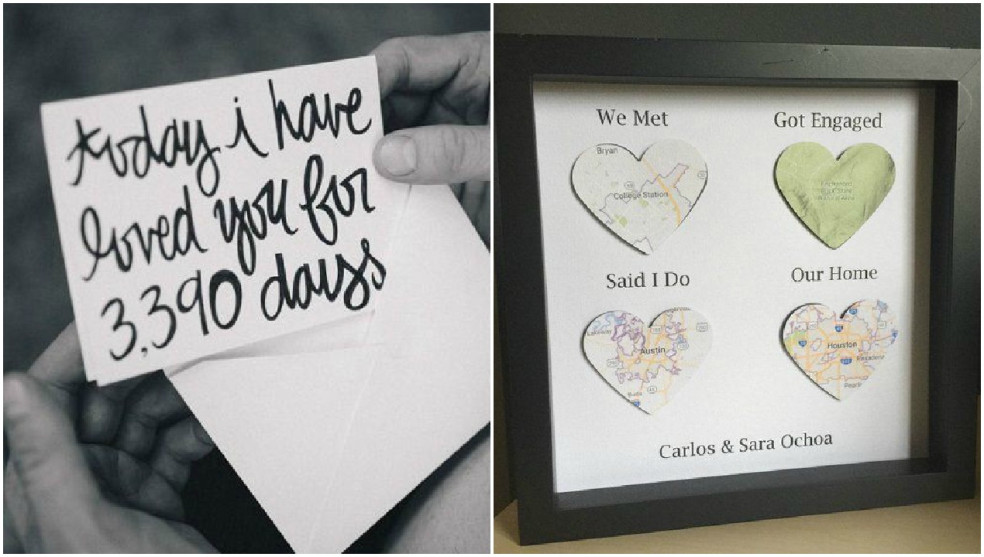 today i have
loved you for
3,390 days
We Met
Got Engaged
Bryan
College Station
Said I Do
Our Home
Austin
Houston
Carlos & Sara Ochoa